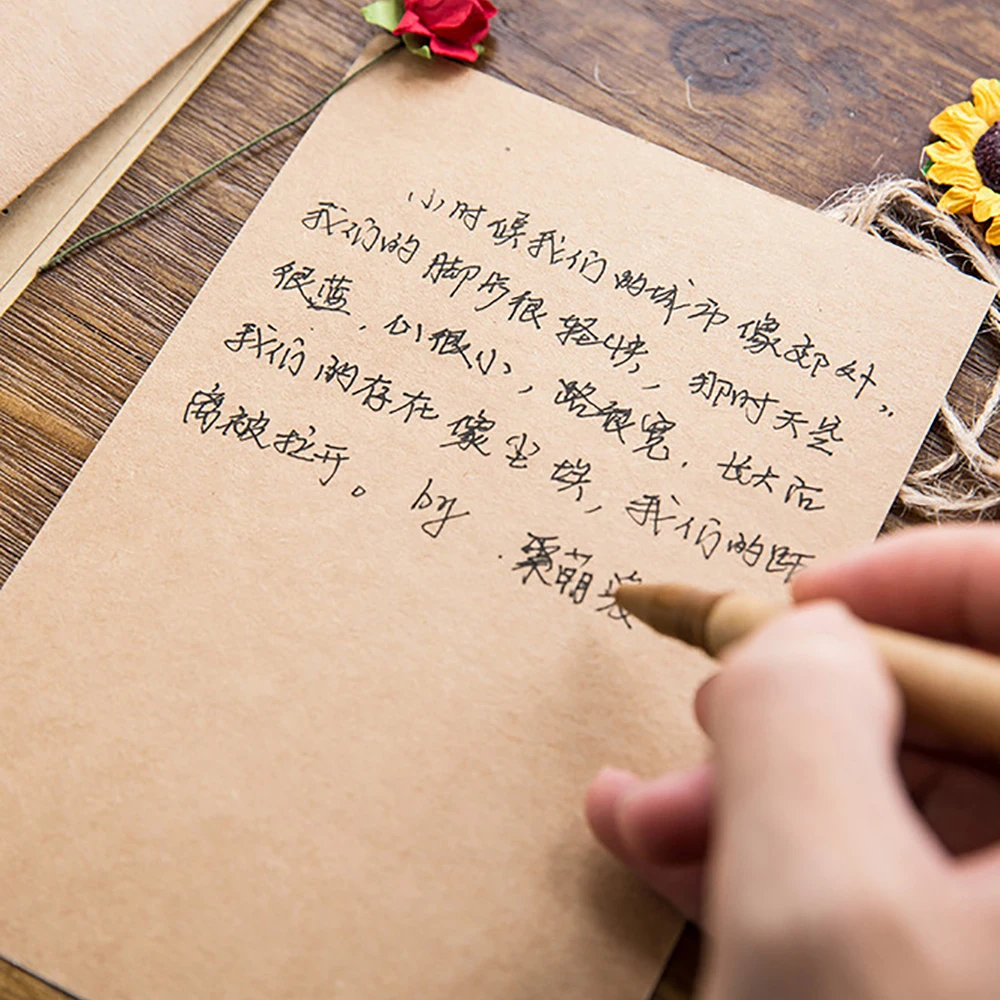 小时候我们的城市像郊外，
我们的脚步很轻快，那时天空
很蓝，心很小，路很宽，长大后
我们的存在像尘埃，我们的距
离被拉开。by
栗萌裟